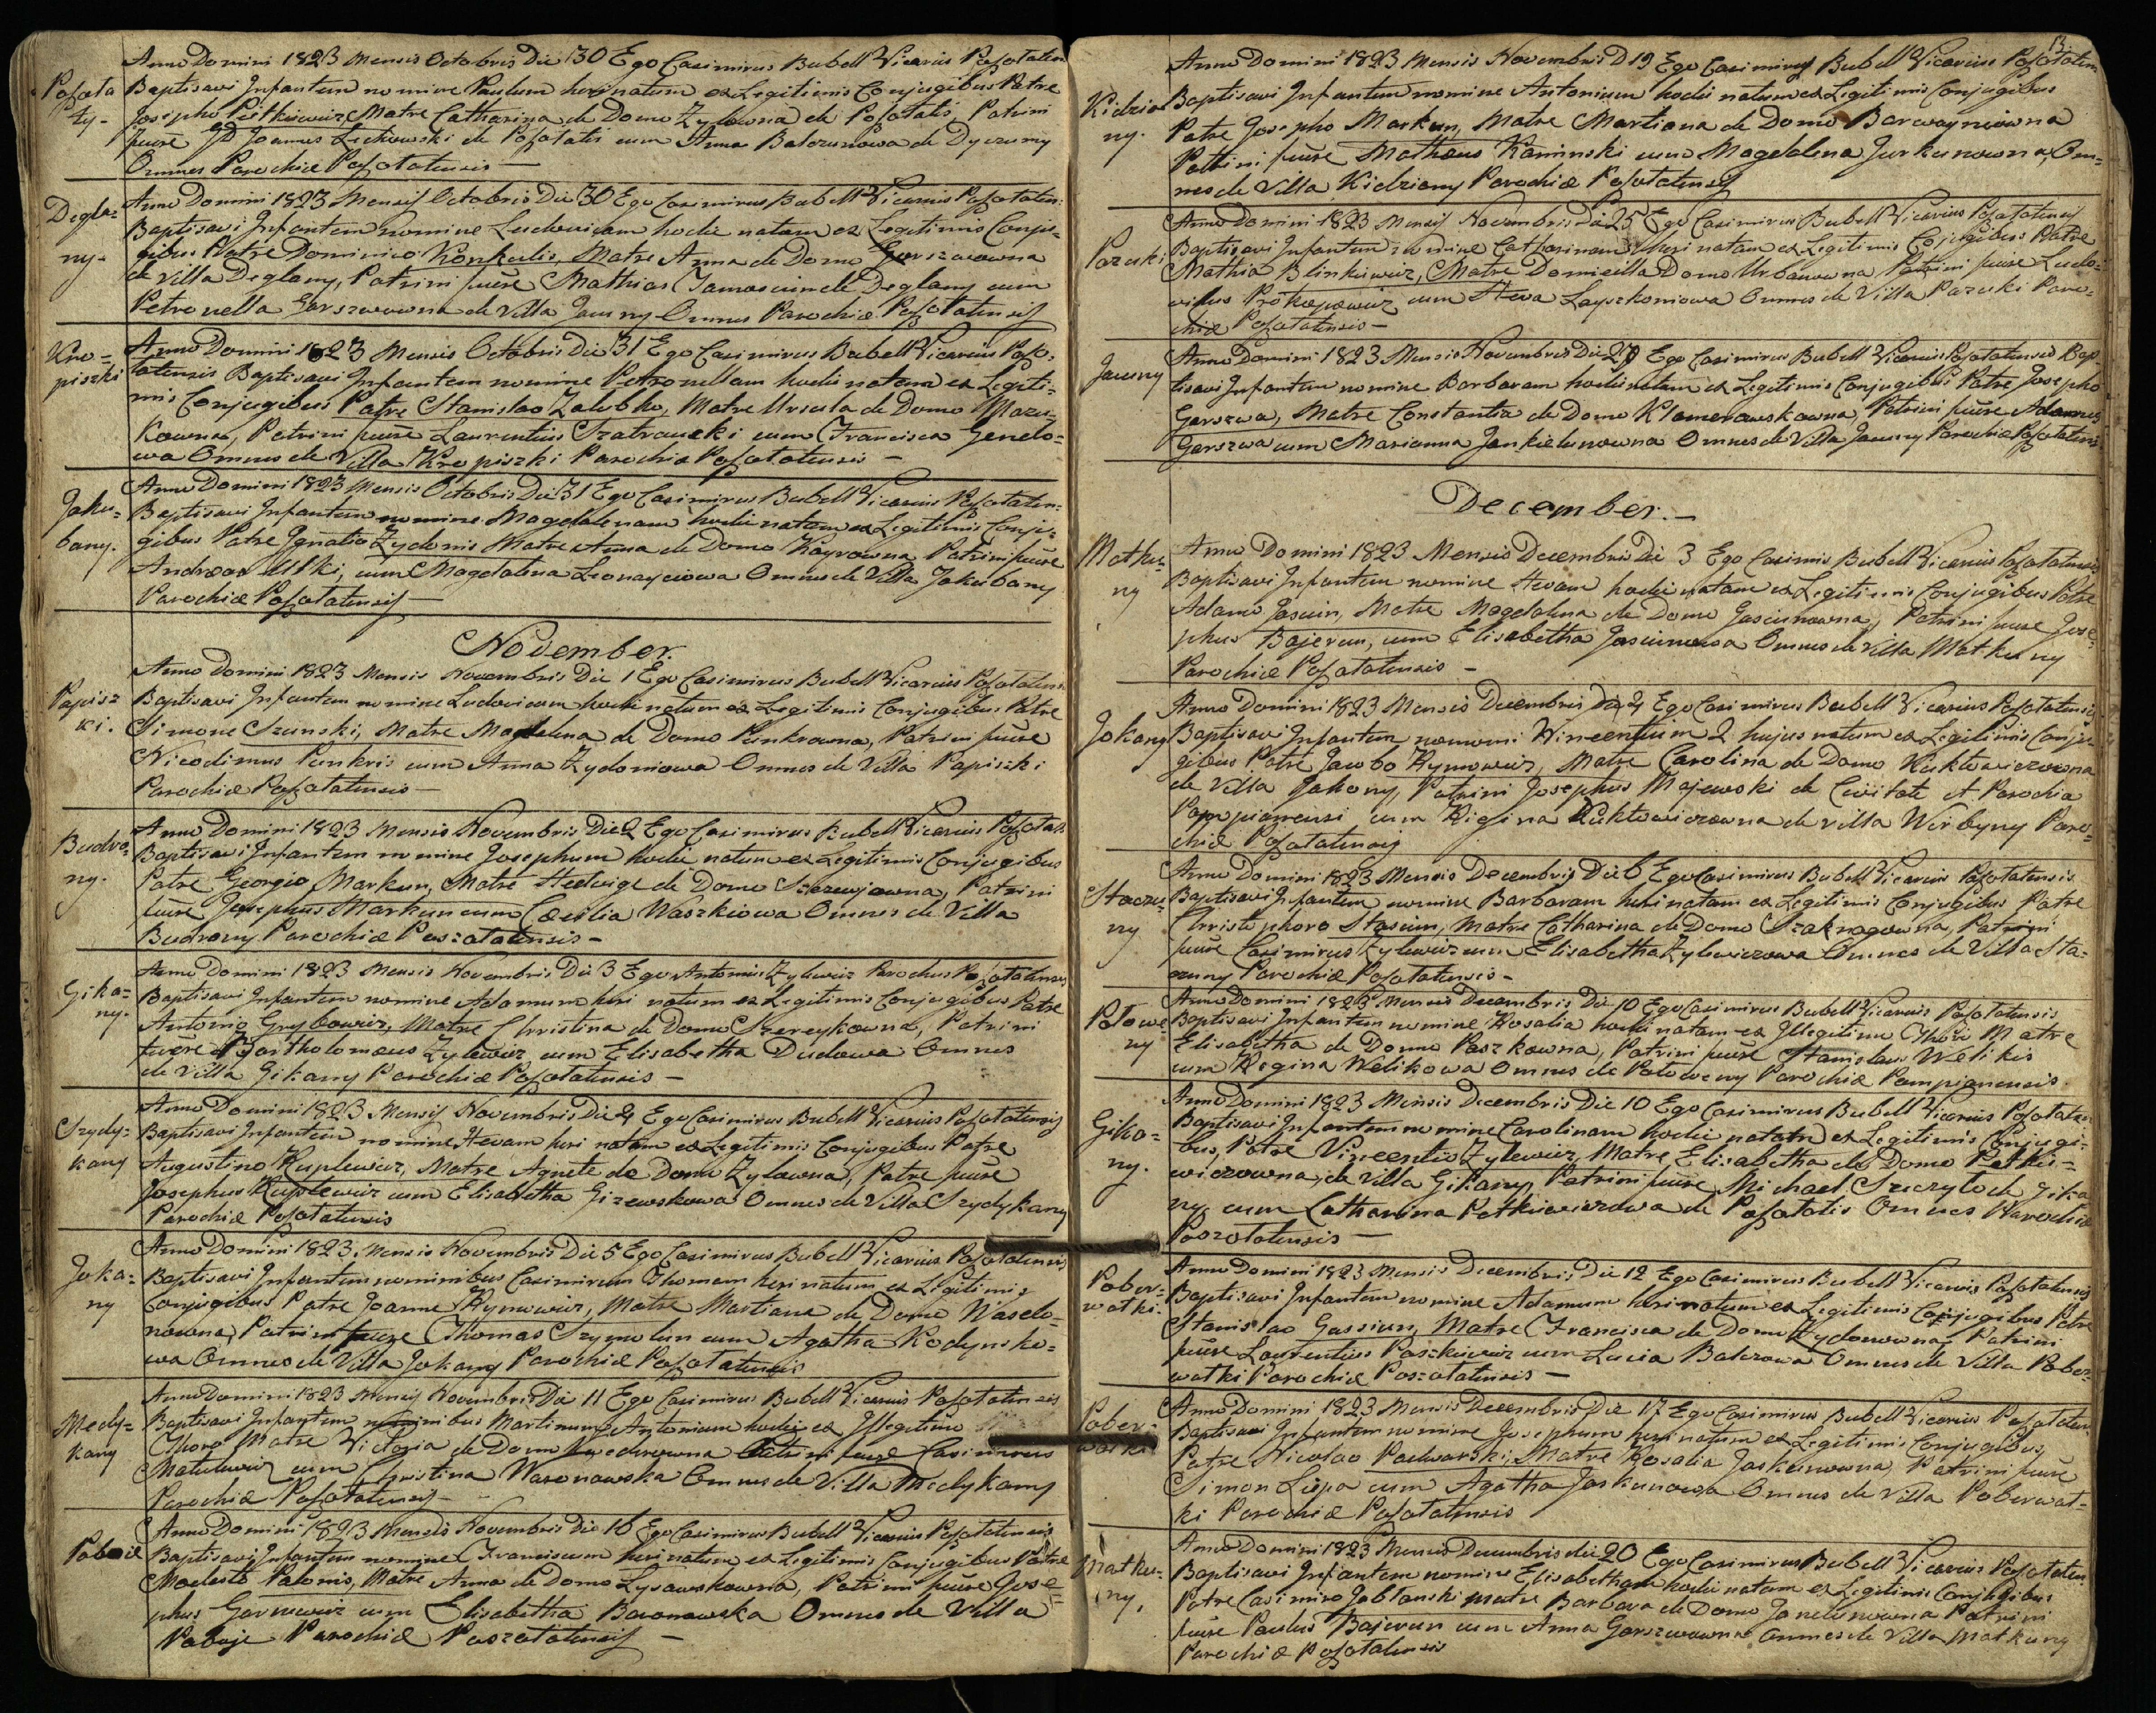 Anno Domini 1823 Mensis Octobris Die 30 Ego Casimirus Bubell Vicarius Poszotaten
Poszota
ty-
Baptisavi Infantem nomine Paulum heri natum ex Legitimis Conjugibus Patre
Josepho Pietkiewicz Matre Catharina de Domo Zylowna de Poszotatis Patrini
fuere GD Joannes Lechowski de Poszotatis cum Anna Balczunowa de Dyczuny
Omnes Parochiæ Poszotatensis —
Degla=
ny-
Anno Domini 1823 Mensis Octobris Die 30 Ego Casimirus Bubell Vicarius Poszotaten:
Baptisavi Infantem nomine Ludovicam hodie natam ex Legitimis Conju=
gibus Patre Dominico Konkulis, Matre Anna de Domo Garszwowna
de Villa Deglany, Patrini fuere Mathias Tamoscium de Deglany cum
Petronella Garszwowna de Villa Jauny Omnes Parochiæ Poszotatensis
Kro=
piszki
Anno Domini 1823 Mensis Octobris Die 31 Ego Casimirus Bubell Vicarius Poszo=
tatensis Baptisavi Infantem nomine Petronellam hodie natam ex Legiti=
mis Conjugibus Patre Stanislao Zalubko, Matre Ursula de Domo Mazu=
kowna, Patrini fuere Laurentius Szatrawski cum Francisca Genelo=
wa Omnes de Villa Kropiszki Parochiæ Poszotatensis —
Jaku=
bany.
Anno Domini 1823 Mensis Octobris Die 31 Ego Casimirus Bubell Vicarius Poszotaten:
Baptisavi Infantem nomine Magdalenam hodie natam ex Legitimis Conju=
gibus Patre Ignatio Zydonis Matre Anna de Domo Kayrowna Patrini fuere
Andreas Ustki, cum Magdalena Leonayciowa Omnes de Villa Jakubany
Parochiæ Poszotatensis —
November.
Papisz
ki.
Anno Domini 1823 Mensis Novembris Die 1 Ego Casimirus Bubell Vicarius Poszotatens
Baptisavi Infantem nomine Ludovicum hodie natum ex Legitimis Conjugibus Patre
Simone Szunski, Matre Magdalena de Domo Punkrowna, Patrini fuere
Nicodimus Punkris cum Anna Zydoniowa Omnes de Villa Papiszki
Parochiæ Poszotatensis —
Budro=
ny.
Anno Domini 1823 Mensis Novembris Die 2 Ego Casimirus Bubell Vicarius Poszotat:
Baptisavi Infantem nomine Josephum hodie natum ex Legitimis Conjugibus
Patre Georgio Markun, Matre Hedvige de Domo Szczujowna, Patrini
fuere Josephus Markun cum Cæcilia Waszkiowa Omnes de Villa
Budrony Parochiæ Poszotatensis —
Gika=
ny.
Anno Domini 1823 Mensis Novembris Die 3 Ego Antonius Zylewicz Parochus Poszotatensis
Baptisavi Infantem nomine Adamum heri natum ex Legitimis Conjugibus Patre
Antonio Grybowicz, Matre Christina de Domo Szereykowna, Patrini
fuere Bartholomæus Zylewicz cum Elisabetha Dudowa Omnes
de Villa Gikany Parochiæ Poszotatensis —
Szydy=
kany
Anno Domini 1823 Mensis Novembris Die 4 Ego Casimirus Bubell Vicarius Poszotatensis
Baptisavi Infantem nomine Hevam heri natam ex Legitimis Conjugibus Patre
Augustino Kuplewicz, Matre Agnete de Domo Zylowna, Patre fuere
Josephus Kuplewicz cum Elisabetha Gizewskowa Omnes de Villa Szydykany
Parochiæ Poszotatensis
Joka=
ny
Anno Domini 1823 Mensis Novembris Die 5 Ego Casimirus Bubell Vicarius Poszotatensis
Baptisavi Infantem nominibus Casimirum Thomam heri natum ex Legitimis
Conjugibus Patre Joanne Rymowicz, Matre Martiana de Domo Waselo=
nowna, Patrini fuere Thomas Szymelun cum Agatha Kodynsko=
wa Omnes de Villa Jokany Parochiæ Poszotatensis
Medy=
kany
Anno Domini 1823 Mensis Novembris Die 11 Ego Casimirus Bubell Vicarius Poszotatensis
Baptisavi Infantem nominibus Martinum Antonium hodie ex Illegitimo
Thoro Matre Victoria de Domo Patrini fuere Casimirus
Matulewicz cum Christina Waronowska Omnes de Villa Medykany
Parochiæ Poszotatensis —
Poboie
Anno Domini 1823 Mensis Novembris Die 16 Ego Casimirus Bubell Vicarius Poszotatensis
Baptisavi Infantem nomine Franciscum heri natum ex Legitimis Conjugibus Patre
Modesto Palonis, Matre Anna de Domo Lysawskowna, Patrini fuere Jose=
phus Garniewicz cum Elisabetha Baronowska Omnes de Villa
Poboje Parochiæ Poszotatensis —
13.
Kidzia
ny.
Anno Domini 1823 Mensis Novembris D 19 Ego Casimirus Bubell Vicarius Poszotatens
Baptisavi Infantem nomine Antonium hodie natum ex Legitimis Conjugibus
Patre Josepho Markun, Matre Martiana de Domo Barwayniowna
Patrini fuere Mathæus Kaminski cum Magdalena Jurkunowna, Om=
nes de Villa Kidziany Parochiæ Poszotatensis
Pazuki
Anno Domini 1823 Mensis Novembris Die 25 Ego Casimirus Bubell Vicarius Poszotatensis
Baptisavi Infantem nomine Catharinam heri natam ex Legitimis Conjugibus Patre
Mathia Blinkiewicz, Matre Domicilla Domo Urbanowna Patrini fuere Ludo=
vicus Prokopowicz cum Heva Layszkoniowa Omnes de Villa Pazuki Paro=
chiæ Poszotatensis —
Jauny
Anno Domini 1823 Mensis Novembris Die 29 Ego Casimirus Bubell Vicarius Poszotatensis Bap
tisavi Infantem nomine Barbaram hodie natam ex Legitimis Conjugibus Patre Josepho
Garszwa, Matre Constantia de Domo Klamerowskowna, Patrini fuere Adamus
Garszwa cum Marianna Jankielunowna Omnes de Villa Jauny Parochiæ Poszotatens
December. —
Matku=
ny
Anno Domini 1823 Mensis Decembris Die 3 Ego Casimir Bubell Vicarius Poszotatensis
Baptisavi Infantem nomine Hevam hodie natam ex Legitimis Conjugibus Patre
Adamo Jasiun, Matre Magdalena de Domo Jasiunowna, Patrini fuere Jose=
phus Bajerun, cum Elisabetha Jasiunowa Omnes de Villa Matkuny
Parochiæ Poszotatensis —
Jokany
Anno Domini 1823 Mensis Decembris Die 4 Ego Casimirus Bubell Vicarius Poszotatensis
Baptisavi Infantem nomini Wincentium 2 hujus natum ex Legitimis Conju=
gibus Patre Jacobo Rymowicz, Matre Carolina de Domo Kuktwiczowna
de Villa Jokany, Patrini Josephus Majewski de Civitate et Parochia
Pompianensi cum Rigina Kuktwiczowna de Villa Wirbyny Paro=
chiæ Poszotatensis
Staczu=
ny
Anno Domini 1823 Mensis Decembris Die 6 Ego Casimirus Bubell Vicarius Poszotatensis
Baptisavi Infantem nomine Barbaram heri natam ex Legitimis Conjugibus Patre
Christophoro Stasiun, Matre Catharina de Domo Szaknagowna, Patrini
fuere Casimirus Zylewicz cum Elisabetha Zylewiczowa Omnes de Villa Sta=
czuny Parochiæ Poszotatensis —
Polowe
ny
Anno Domini 1823 Mensis Decembris Die 10 Ego Casimirus Bubell Vicarius Poszotatensis
Baptisavi Infantem nomine Rosalia hodie natam ex Illegitimo Thori Matre
Elisabetha de Domo Paszkowna, Patrini fuere Stanislaus Welikis
cum Regina Welikowa Omnes de Poloweny Parochiæ Pompianensis.
Gika=
ny.
Anno Domini 1823 Mensis Decembris Die 10 Ego Casimirus Bubell Vicarius Poszotaten
Baptisavi Infantem nomine Carolinam hodie natam ex Legitimis Conjugi=
bus, Patre Vincentio Zylewicz, Matre Elisabetha de Domo Petkie=
wiczowna, de Villa Gikany, Patrini fuere Michael Szczyto de Gika
ny cum Catharina Petkiewiczowa de Poszotatis Omnes Parochiæ
Poszotatensis —
Pober=
watki.
Anno Domini 1823 Mensis Decembris Die 12 Ego Casimirus Bubell Vicarius Poszotatensis
Baptisavi Infantem nomine Adamum heri natum ex Legitimis Conjugibus Patre
Stanislao Gassiun, Matre Francisca de Domo Zydonowna, Patrini
fuere Laurentius Paszkiewicz cum Lucia Balczowa Omnes de Villa Pober=
watki Parochiæ Poszotatensis —
Pober=
watki
Anno Domini 1823 Mensis Decembris Die 17 Ego Casimirus Bubell Vicarius Poszotaten
Baptisavi Infantem nomine Josephum heri natum ex Legitimis Conjugibus,
Patre Nicolao Podwarski, Matre Rosalia Jaskunowna, Patrini fuere
Simon Liepa cum Agatha Jaskunowa Omnes de Villa Poberwat=
ki Parochiæ Poszotatensis
Matku=
ny.
Anno Domini 1823 Mensis Decembris die 20 Ego Casimirus Bubell Vicarius Poszotaten
Baptisavi Infantem nomine Elisabetham hodie natam ex Legitimis Conjugibus
Patre Casimiro Jablonski Matre Barbara de Domo Janelunowna Patrini
fuere Paulus Bajerun cum Anna Garszwowna Omnes de Villa Matkuny
Parochiæ Poszotatensis